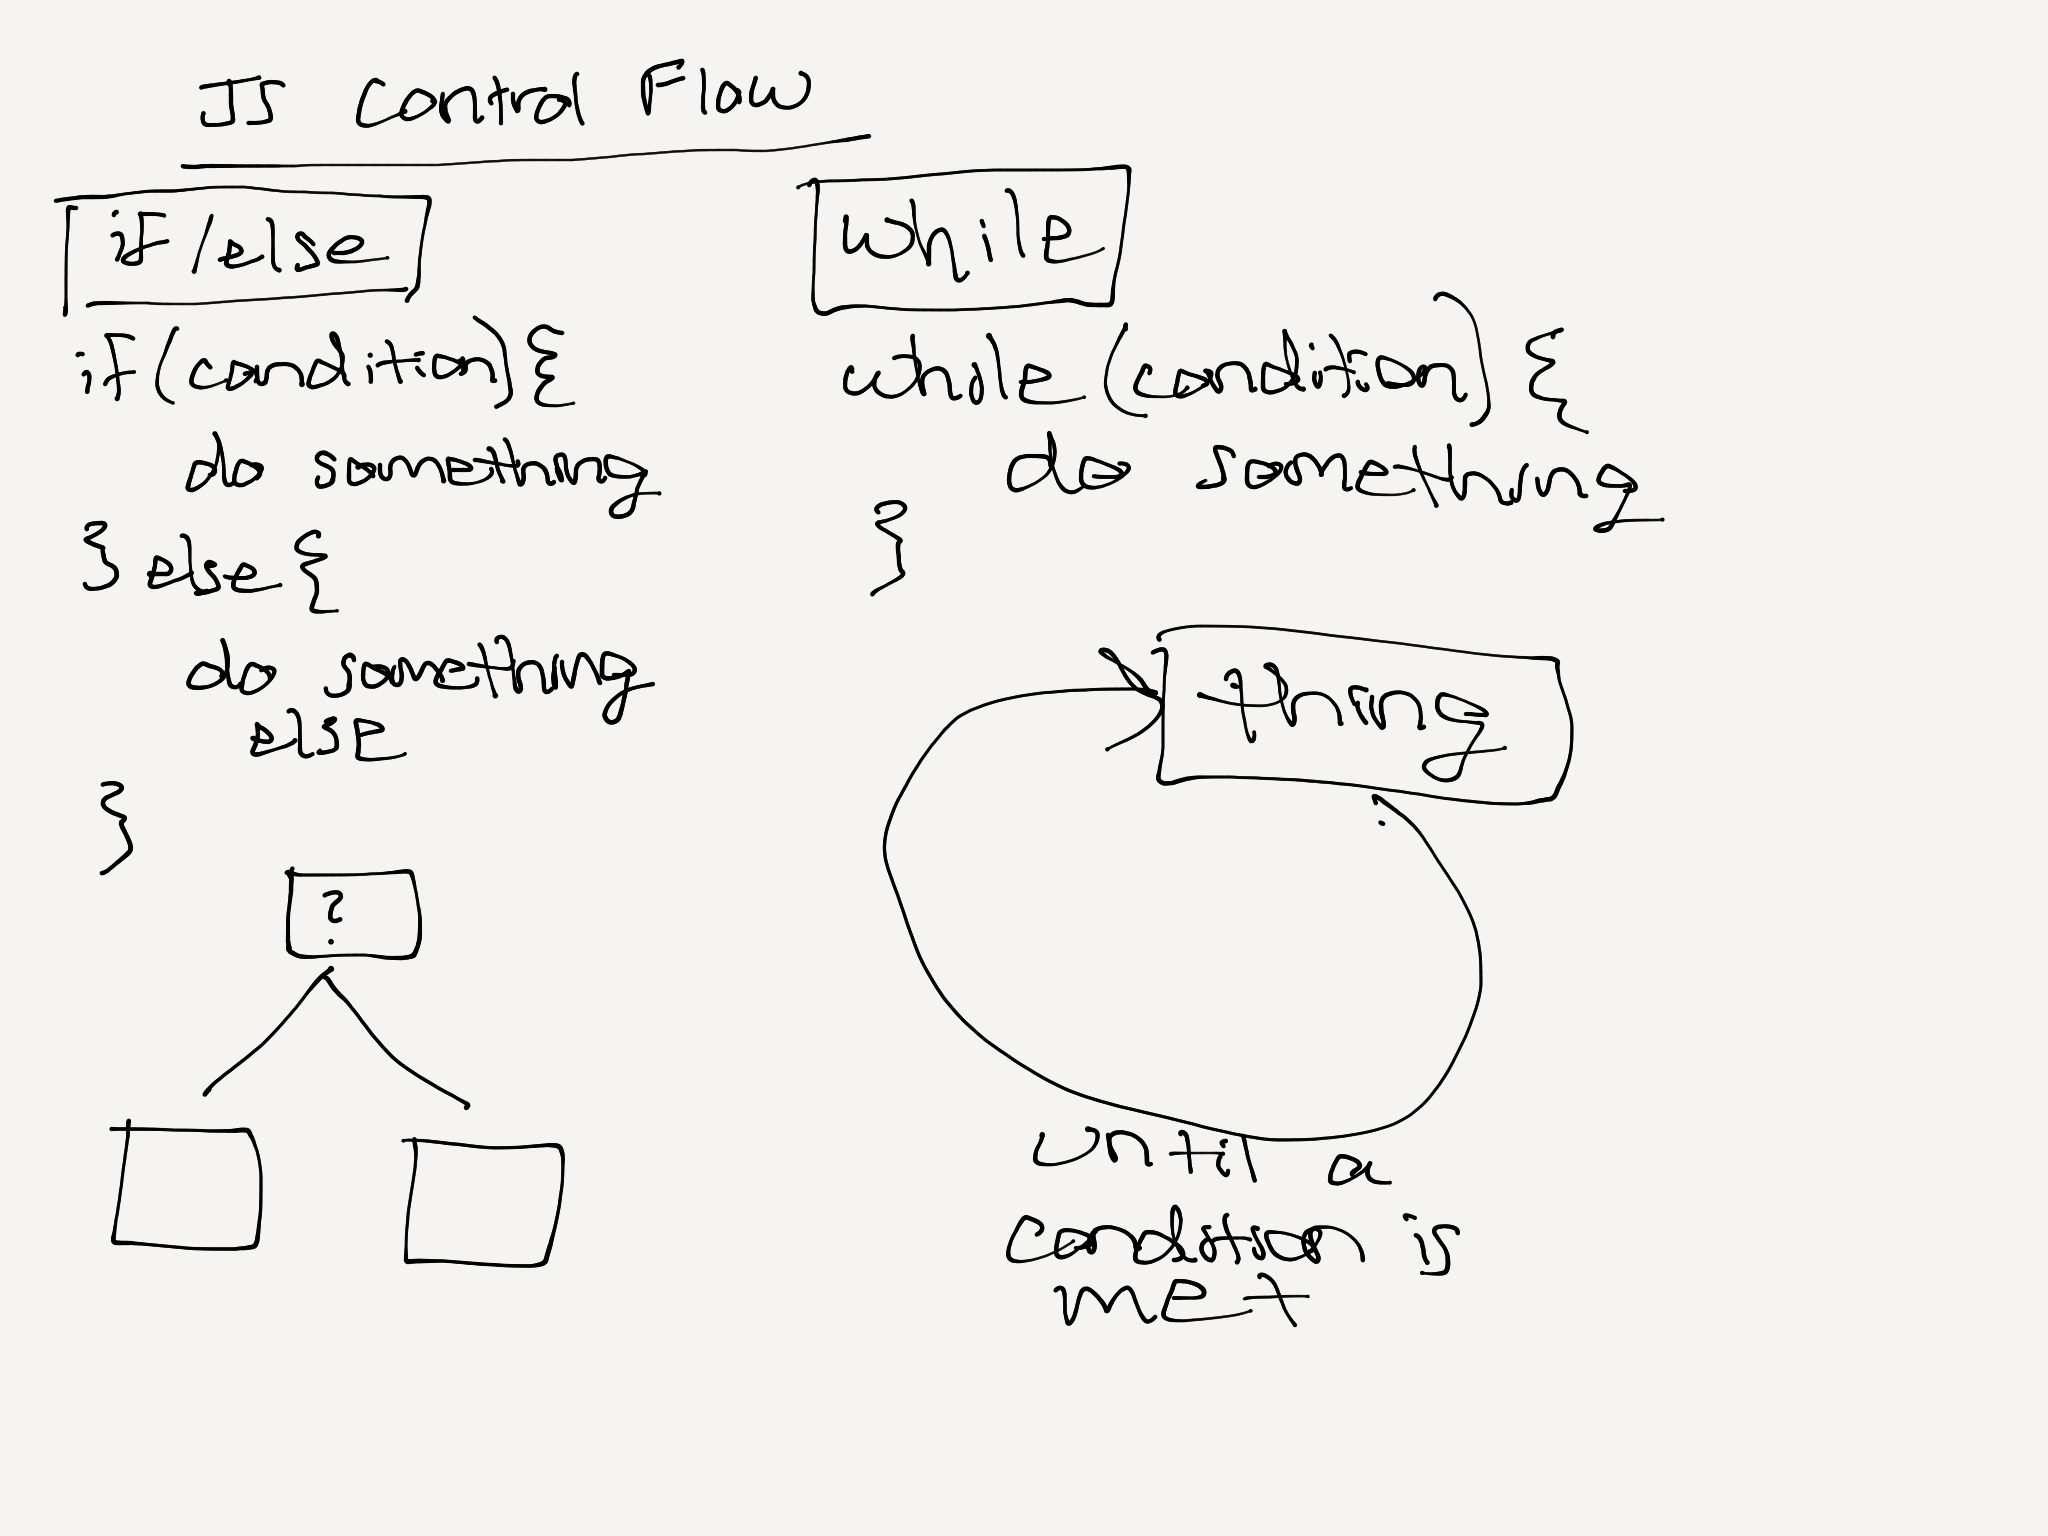 JS Control Flow
if/else
if(condition){
do something
} else {
do something
else
}
?
while
while(condition) {
do something
}
thing
until a
condition is
met